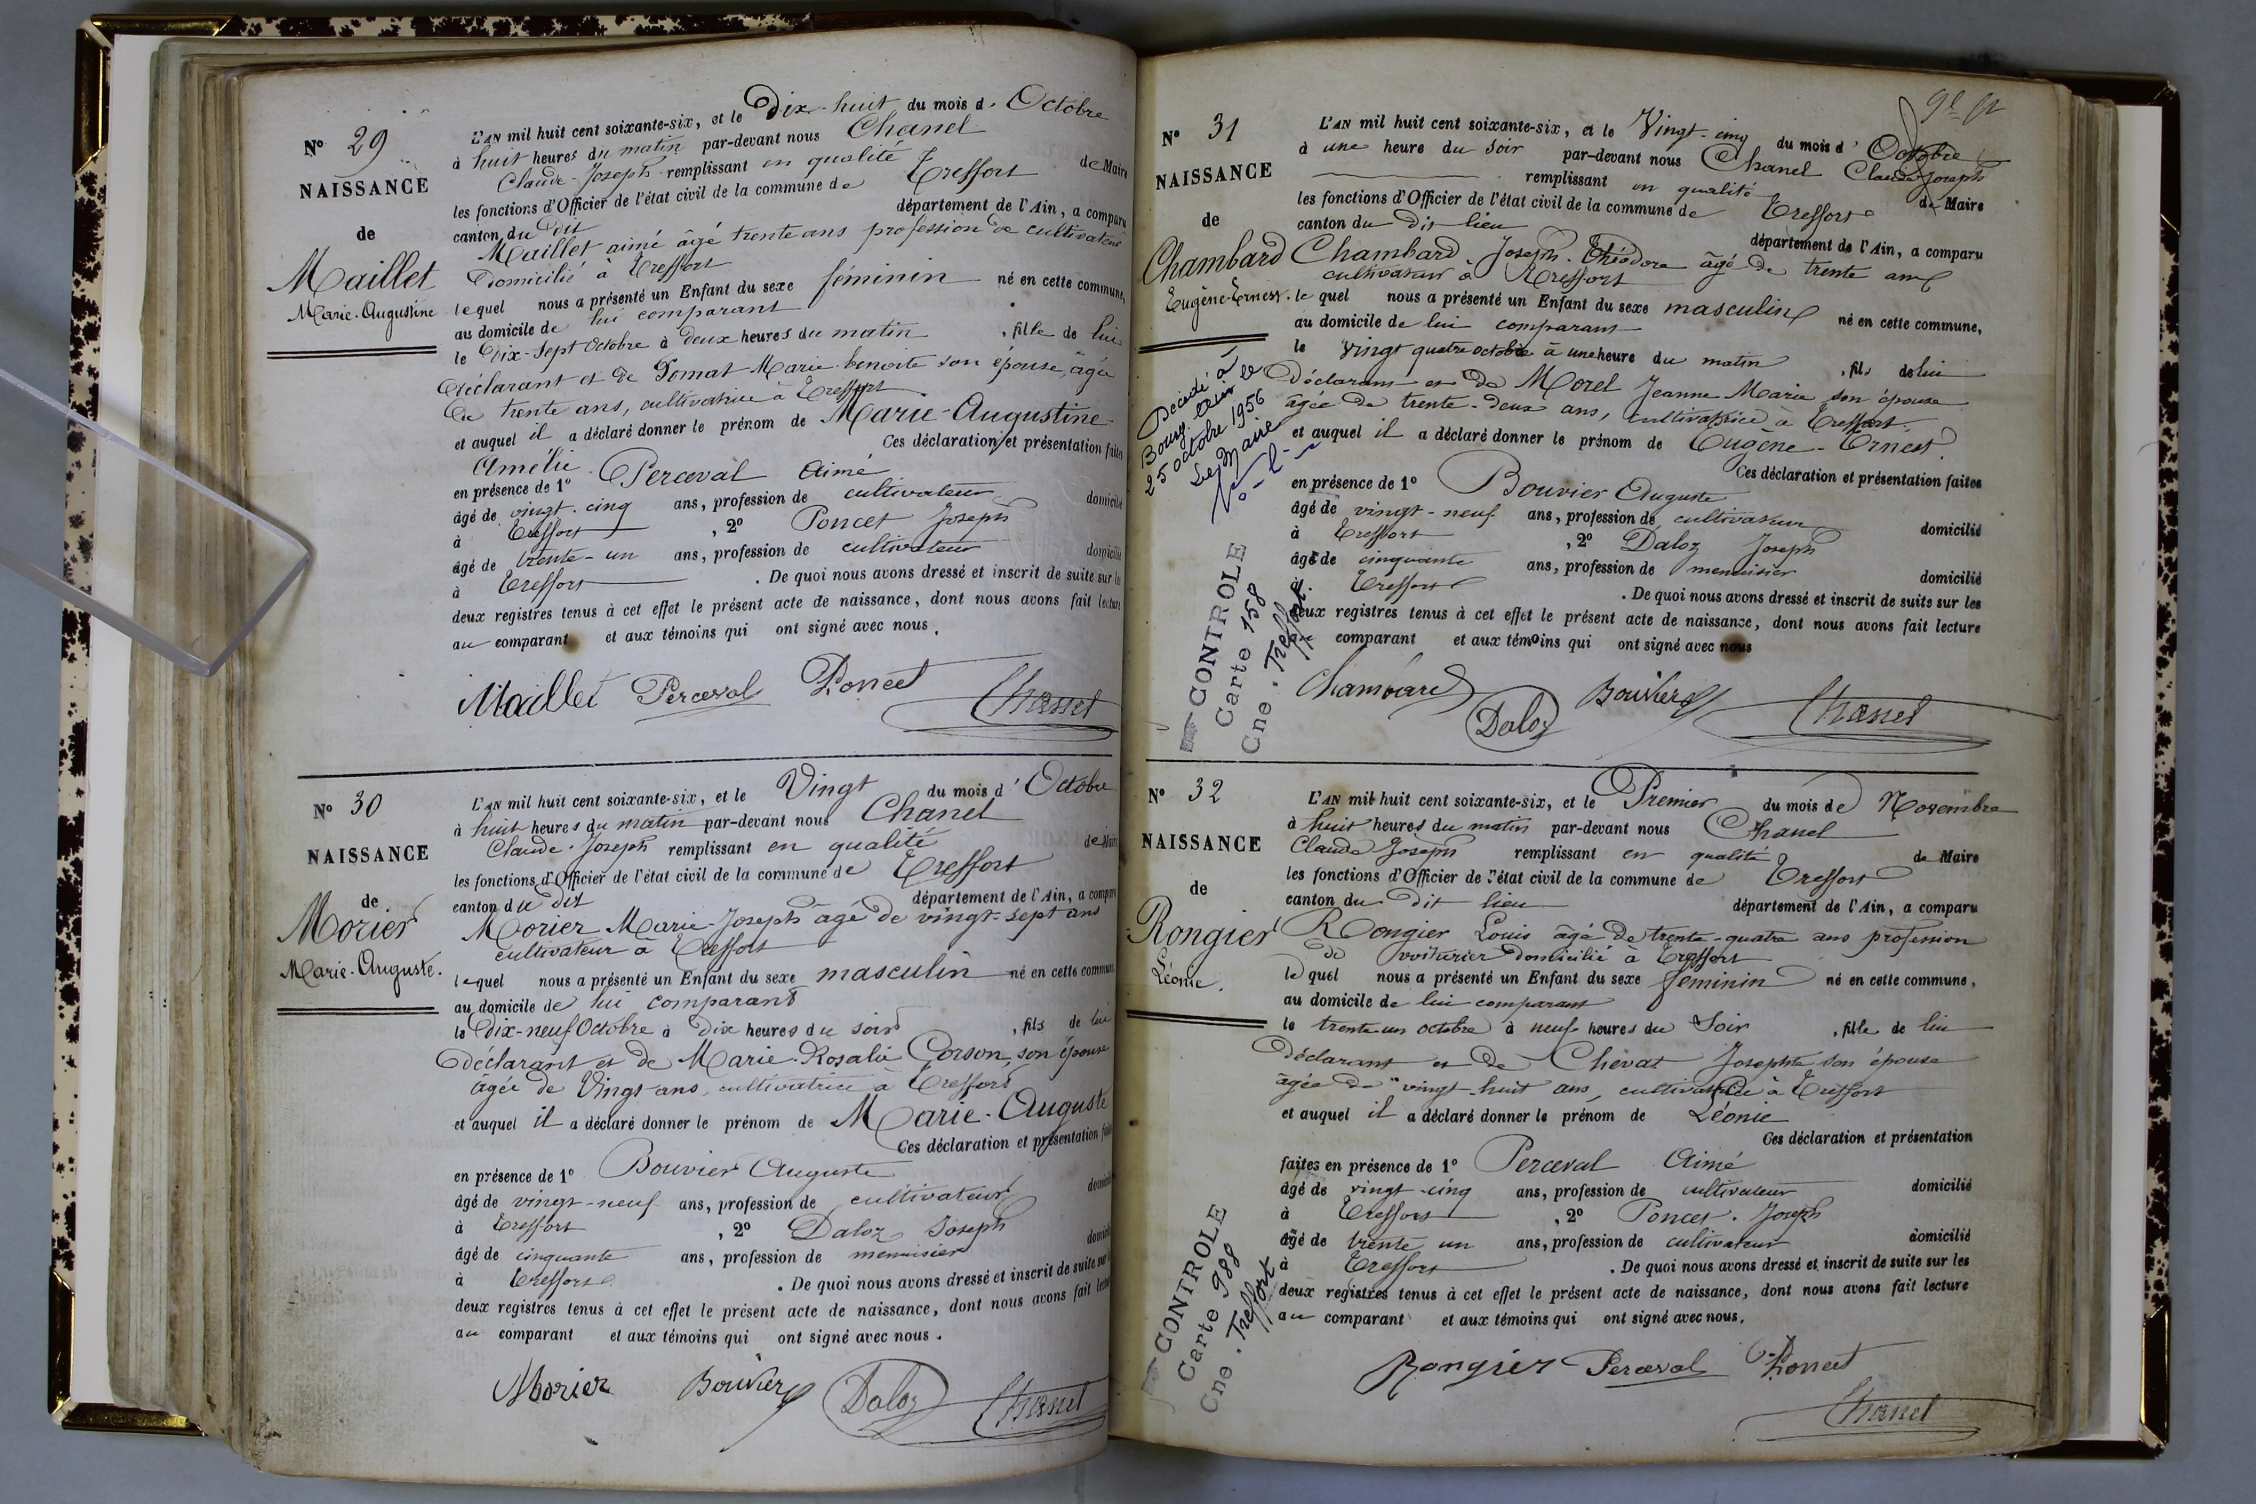 N° 29
NAISSANCE
de
Maillet
Marie-Augustine
L'AN mil huit cent soixante-six, et le Dix-huit du mois d'Octobre
à huit heures du matin par-devant nous Chanel
Claude-Joseph remplissant en qualité de Maire
les fonctions d'Officier de l'état civil de la commune de Treffort
canton du dit département de l'Ain, a comparu
Maillet aimé âgé trente ans profession de cultivateur
Domicilié à Treffort
lequel nous a présenté un Enfant du sexe féminin né en cette commune,
au domicile de lui comparant
le Dix-Sept Octobre à Deux heures du matin, fille de lui
Déclarant et de Pomat Marie-benoite son épouse, âgée
De trente ans, cultivatrice à Treffort
et auquel il a déclaré donner le prénom de Marie-Augustine
Amélie Ces déclaration et présentation faites
en présence de 1° Perceval Aimé
âgé de vingt-cinq ans, profession de cultivateur domicilié
à Treffort, 2° Poncet Joseph
âgé de trente-un ans, profession de cultivateur domicilié
à Treffort. De quoi nous avons dressé et inscrit de suite sur les
deux registres tenus à cet effet le présent acte de naissance, dont nous avons fait lecture
au comparant et aux témoins qui ont signé avec nous.
Maillet Perceval Poncet Chanel
N° 30
NAISSANCE
de
Morier
Marie-Auguste.
L'AN mil huit cent soixante-six, et le Vingt du mois d'Octobre
à huit heures du matin par-devant nous Chanel
Claude-Joseph remplissant en qualité de Maire
les fonctions d'Officier de l'état civil de la commune de Treffort
canton du dit département de l'Ain, a comparu
Morier Marie-Joseph âgé de vingt-sept ans
cultivateur à Treffort
lequel nous a présenté un Enfant du sexe masculin né en cette commune,
au domicile de lui comparant
le dix-neuf Octobre à Dix heures du soir, fils de lui
déclarant et de Marie-Rosalie Corson, son épouse
âgée de Vingt ans, cultivatrice à Treffort
et auquel il a déclaré donner le prénom de Marie-Auguste
Ces déclaration et présentation faites
en présence de 1° Bouvier Auguste
âgé de vingt-neuf ans, profession de cultivateur domicilié
à Treffort, 2° Daloz Joseph
âgé de cinquante ans, profession de menuisier domicilié
à Treffort. De quoi nous avons dressé et inscrit de suite sur les
deux registres tenus à cet effet le présent acte de naissance, dont nous avons fait lecture
au comparant et aux témoins qui ont signé avec nous.
Morier Bouvier Daloz Chanel
N° 31
NAISSANCE
de
Chambard
Eugène-Ernest.
Décédé à
Bourg. Ain le
25 octobre 1956
Le Maire
CONTROLE
Carte 158
Cne. Treffort
L'AN mil huit cent soixante-six, et le Vingt-cinq du mois d'Octobre
à une heure du soir par-devant nous Chanel Claude-Joseph
remplissant en qualité de Maire
les fonctions d'Officier de l'état civil de la commune de Treffort
canton du Dit lieu département de l'Ain, a comparu
Chambard, Joseph-Théodore âgé de trente ans
cultivateur à Treffort
lequel nous a présenté un Enfant du sexe masculin né en cette commune,
au domicile de lui comparant
le Vingt quatre octobre à une heure du matin, fils de lui
Déclarant et de Morel Jeanne Marie son épouse
âgée de trente-deux ans, cultivatrice à Treffort.
et auquel il a déclaré donner le prénom de Eugène-Ernest
Ces déclaration et présentation faites
en présence de 1° Bouvier Auguste
âgé de vingt-neuf ans, profession de cultivateur domicilié
à Treffort, 2° Daloz Joseph
âgé de cinquante ans, profession de menuisier domicilié
à Treffort. De quoi nous avons dressé et inscrit de suite sur les
deux registres tenus à cet effet le présent acte de naissance, dont nous avons fait lecture
comparant et aux témoins qui ont signé avec nous
Chambard Daloz Bouvier Chanel
N° 32
NAISSANCE
de
Rongier
Léonie.
CONTROLE
Carte 988
Cne. Treffort
L'AN mil huit cent soixante-six, et le Premier du mois de Novembre
à huit heures du matin par-devant nous Chanel
Claude Joseph remplissant en qualité de Maire
les fonctions d'Officier de l'état civil de la commune de Treffort
canton du Dit lieu département de l'Ain, a comparu
Rongier Louis âgé de trente-quatre ans profession
de voiturier Domicilié à Treffort
lequel nous a présenté un Enfant du sexe feminin né en cette commune,
au domicile de lui comparant
le trente-un octobre à neuf heures du Soir, fille de lui
Déclarant et de Chevat Josephte son épouse
âgée de vingt-huit ans, cultivatrice à Treffort
et auquel il a déclaré donner le prénom de Léonie
Ces déclaration et présentation
faites en présence de 1° Perceval Aimé
âgé de vingt-cinq ans, profession de cultivateur domicilié
à Treffort, 2° Poncet. Joseph
âgé de trente un ans, profession de cultivateur domicilié
à Treffort. De quoi nous avons dressé et inscrit de suite sur les
deux registres tenus à cet effet le présent acte de naissance, dont nous avons fait lecture
au comparant et aux témoins qui ont signé avec nous.
Rongier Perceval Poncet
Chanel